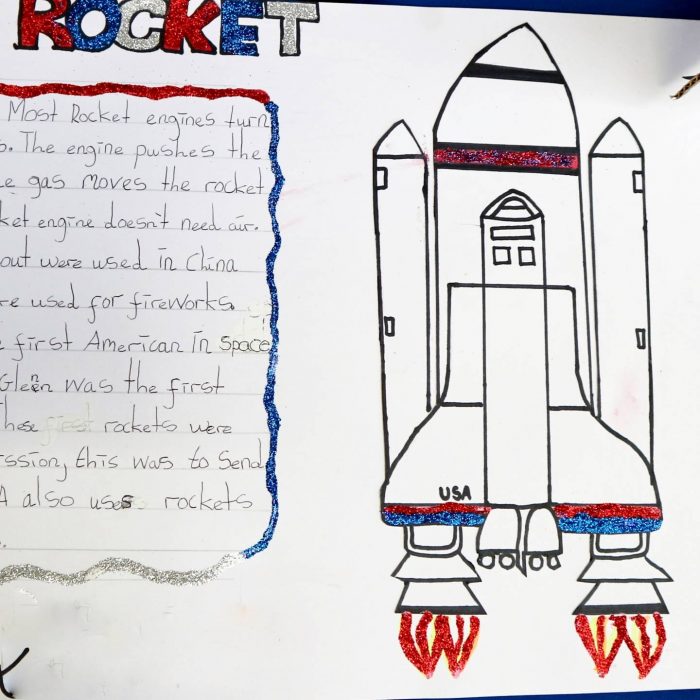 ROCKET
Most Rocket engines turn
s. The engine pushes the
e gas moves the rocket
ket engine doesn't need air.
out were used in China
re used for fireworks.
e first American in space
Glenn was the first
These first rockets were
ission, this was to send
A also uses rockets
USA